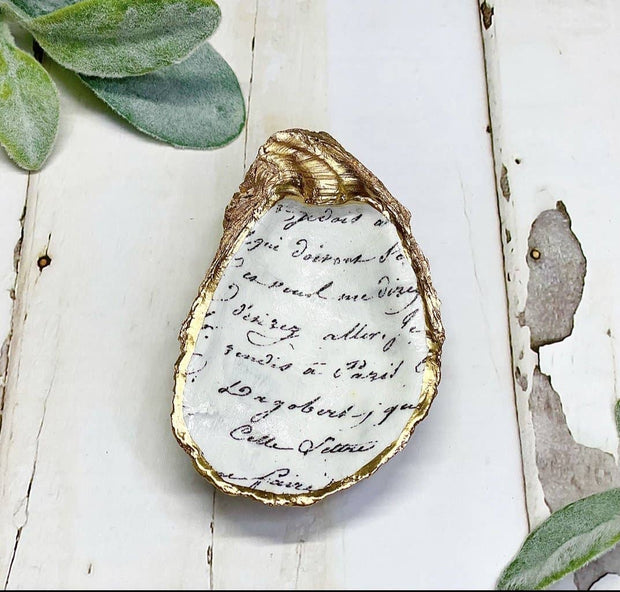 je dois a
qui doivent
me direz
désirez aller, je
rendis à Paris
Dagobert, j que
Cette lettre
faire